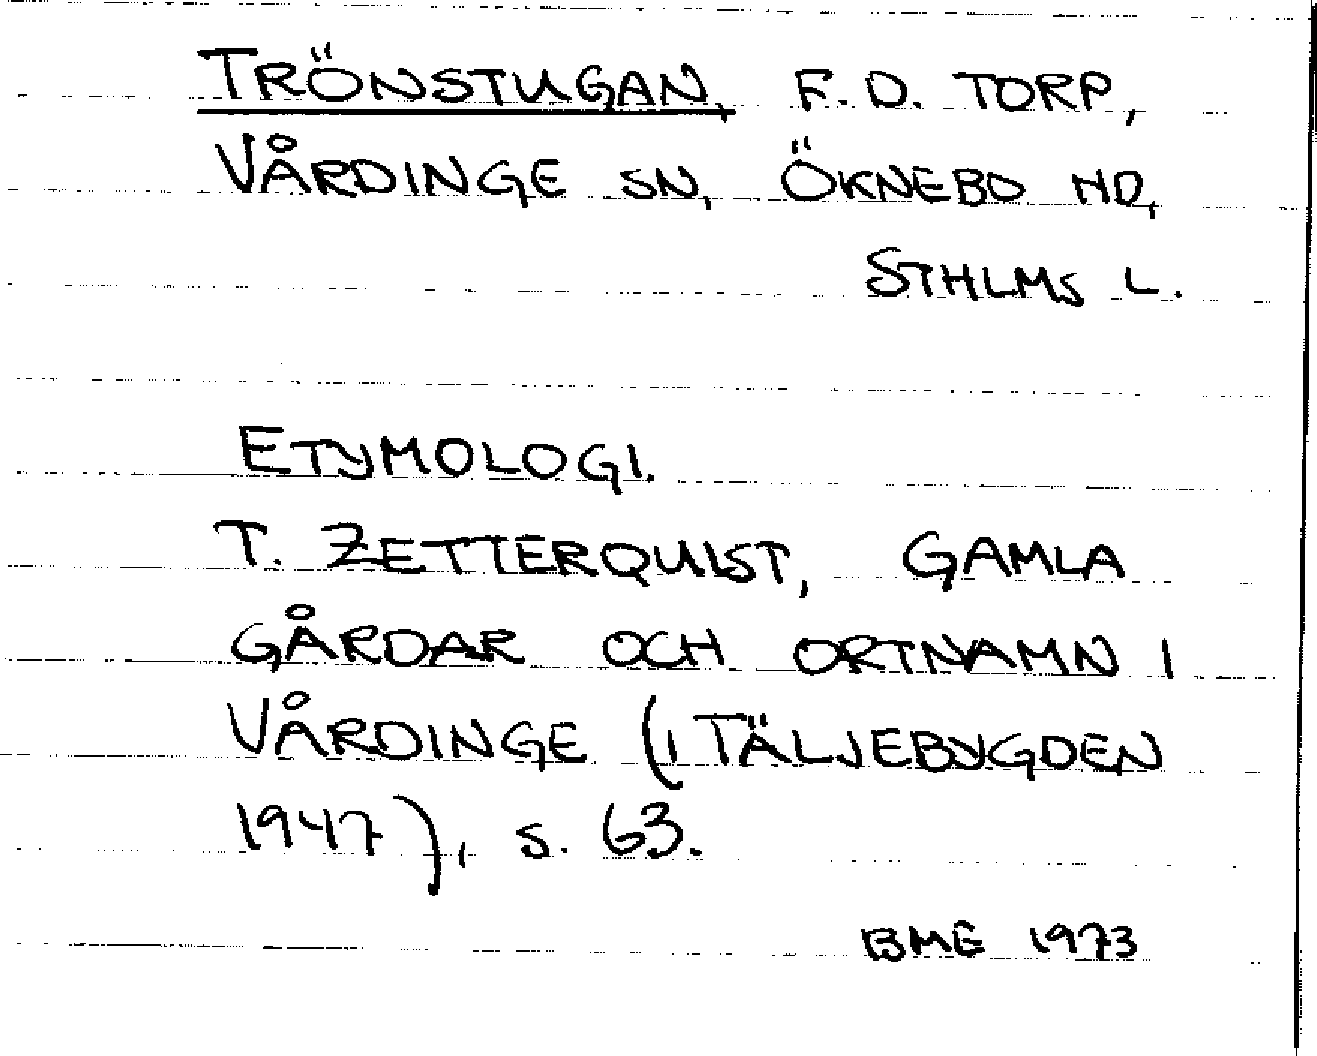 TRÖNSTUGAN, F.D. TORP,
VÅRDINGE SN, ÖKNEBO HD,
STHLMS L.
ETYMOLOGI.
T. ZETTERQUIST, GAMLA
GÅRDAR OCH ORTNAMN I
VÅRDINGE (I TÄLJEBYGDEN
1947), S. 63.
BME 1973